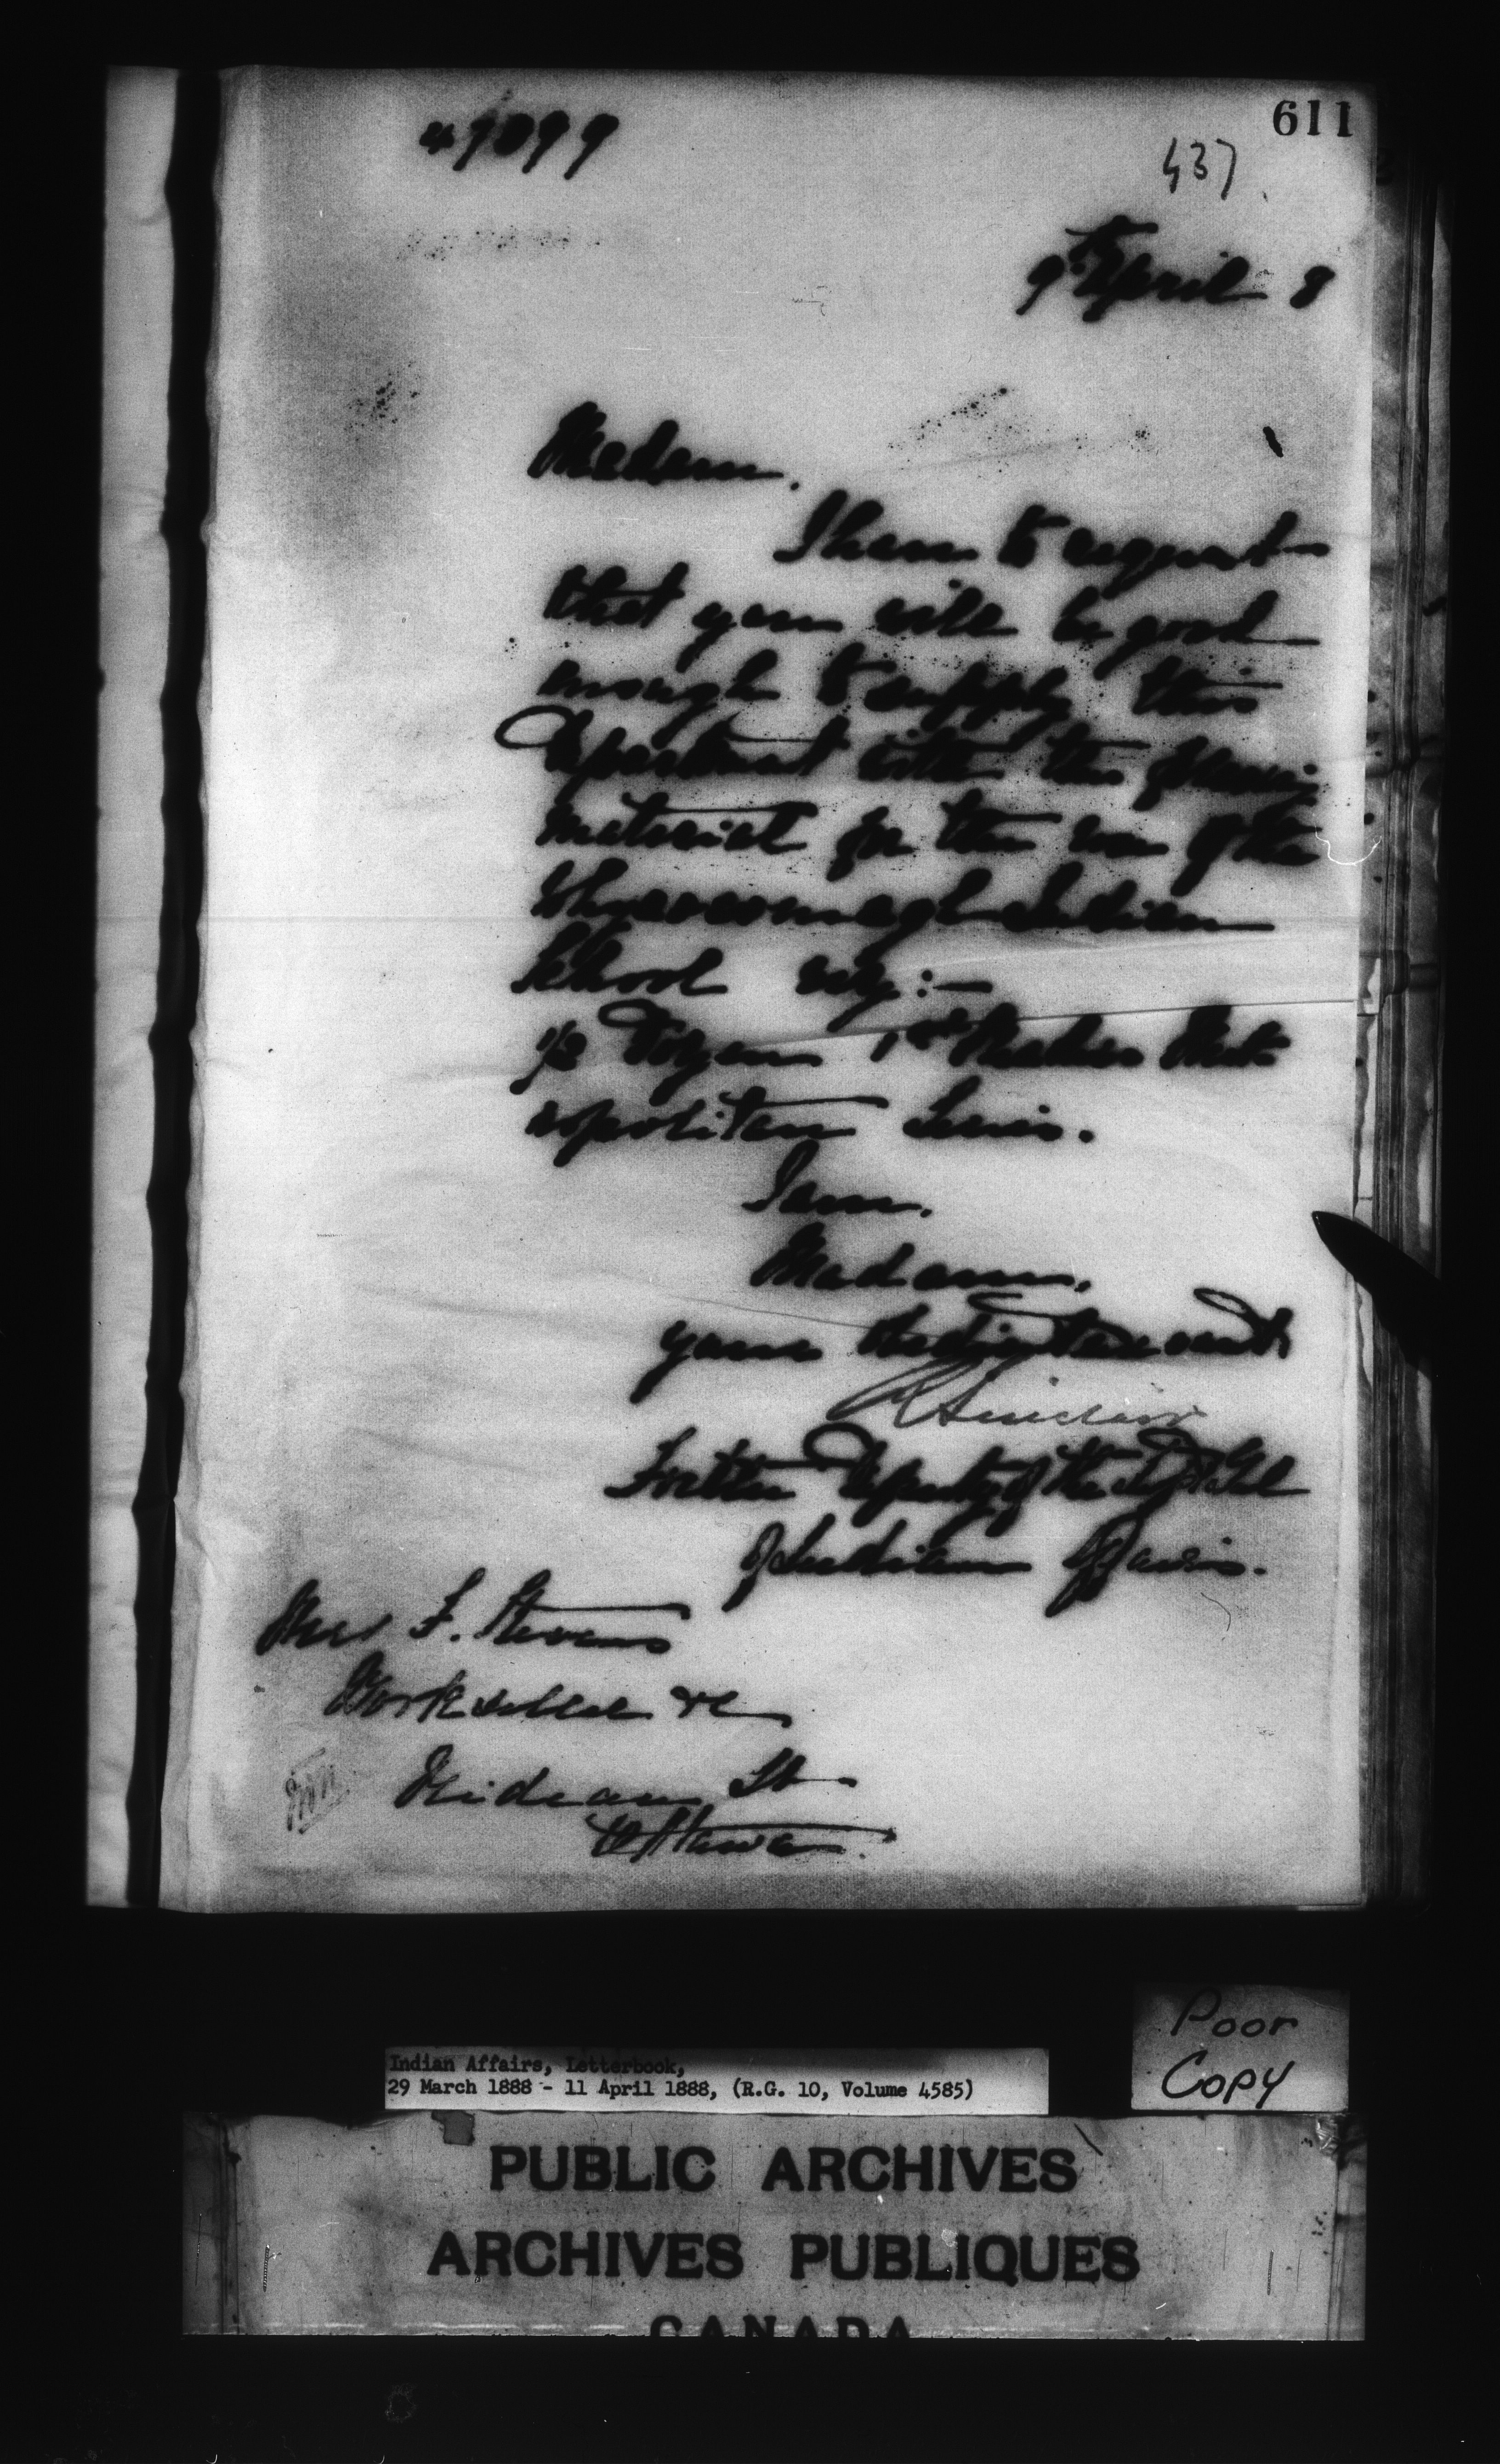 611
49099
437
9th April 8
Madam.
I have to request
that you will be good
enough to supply this
Department with the following
material for the use of the
Whycocomagh Indian
School viz:—
1/2 Dozen 1st Reader Met-
ropolitan Series.
I am,
Madam,
Your obedient servant
R Sinclair
For the Deputy of the Supt Genl
of Indian Affairs.
Mrs F. Stevens
Bookseller &c
Rideau St
Ottawa.
Poor
Copy
Indian Affairs, Letterbook,
29 March 1888 - 11 April 1888, (R.G. 10, Volume 4585)
PUBLIC ARCHIVES
ARCHIVES PUBLIQUES
CANADA